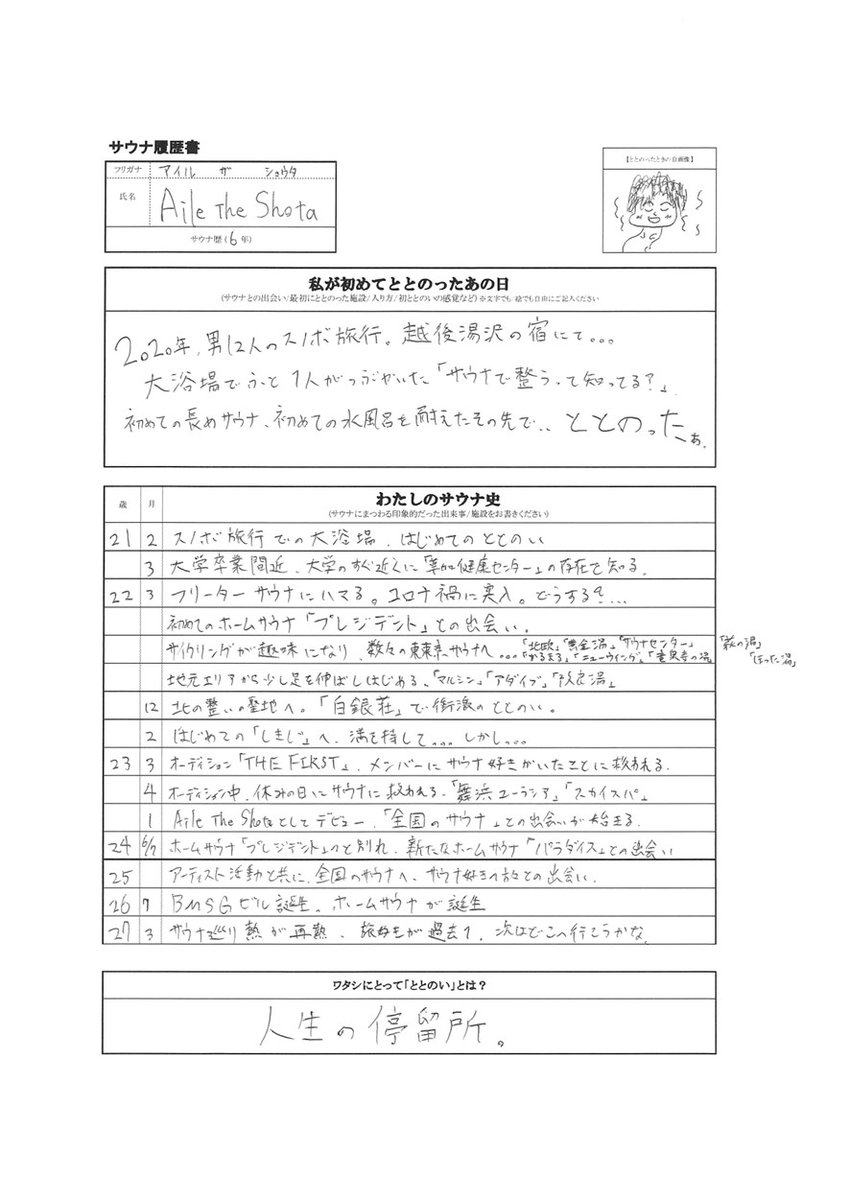 サウナ履歴書
フリガナ アイル ザ ショウタ
氏名 Aile The Shota
サウナ歴(6年)
【ととのったときの自画像】
私が初めてととのったあの日
(サウナとの出会い/最初にととのった施設/入り方/初ととのいの感覚など)※文字でも/絵でも自由にご記入ください
2020年、男12人のスノボ旅行。越後湯沢の宿にて...
大浴場でふと1人がつぶやいた「サウナで整うって知ってる?」
初めての長めサウナ、初めての水風呂を耐えたその先で.. ととのったぁ.
歳 月 わたしのサウナ史
(サウナにまつわる印象的だった出来事/施設をお書きください)
21 2 スノボ旅行での大浴場、はじめてのととのい
3 大学卒業間近、大学のすぐ近くに「草加健康センター」の存在を知る.
22 3 フリーター サウナにハマる。コロナ禍に突入。どうする?...
初めてのホームサウナ「プレジデント」との出会い.
サイクリングが趣味になり、数々の東京サウナへ...「北欧」「黄金湯」「サウナセンター」「萩の湯」
「かるまる」「ニューウイング」「吉祥寺の湯」「ほった湯」
地元エリアから少し足を伸ばしはじめる、「マルシン」「アダムアンドイブ」「改良湯」
12 北の整いの聖地へ。「白銀荘」で衝激のととのい。
2 はじめての「しきじ」へ、満を持して... しかし...
23 3 オーディション「THE FIRST」、メンバーにサウナ好きがいたことに救われる.
4 オーディション中、休みの日にサウナに救われる.「舞浜ユーラシア」「スカイスパ」
1 Aile The Shotaとしてデビュー、「全国のサウナ」との出会いが始まる.
24 6/7 ホームサウナ「プレジデント」との別れ、新たなホームサウナ「パラダイス」との出会い
25 アーティスト活動と共に、全国のサウナへ、サウナ好きの方との出会い.
26 7 BMSGビル誕生。ホームサウナが誕生
27 3 サウナ巡り熱が再熱、旅好きが過去1、次はどこへ行こうかな.
ワタシにとって「ととのい」とは?
人生の停留所。